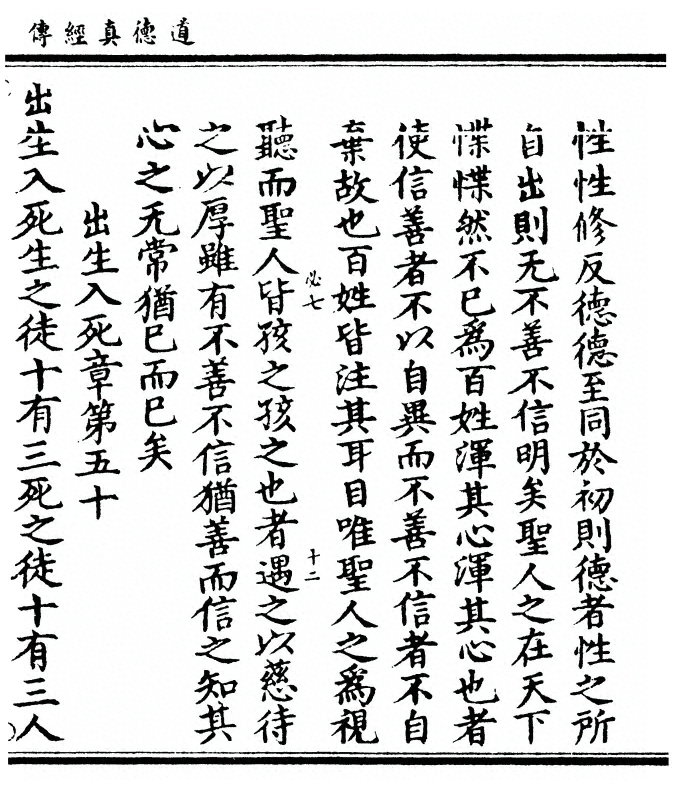 道德真經傳
性性修反德德至同於初則德者性之所
自出則无不善不信明矣聖人之在天下
惵惵然不巳爲百姓渾其心渾其心也者
使信善者不以自異而不善不信者不自
棄故也百姓皆注其耳目唯聖人之爲視
必七
十二
聽而聖人皆孩之孩之也者遇之以慈待
之以厚雖有不善不信猶善而信之知其
心之无常猶巳而巳矣
出生入死章第五十
出生入死生之徒十有三死之徒十有三人